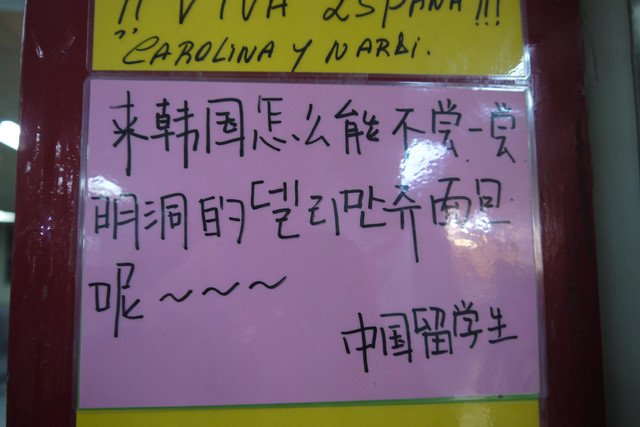 !! VIVA ESPAÑA!!!
CAROLINA Y NARDI.
来韩国怎么能不尝一尝
明洞的델리만쥬面包
呢~~~
中国留学生